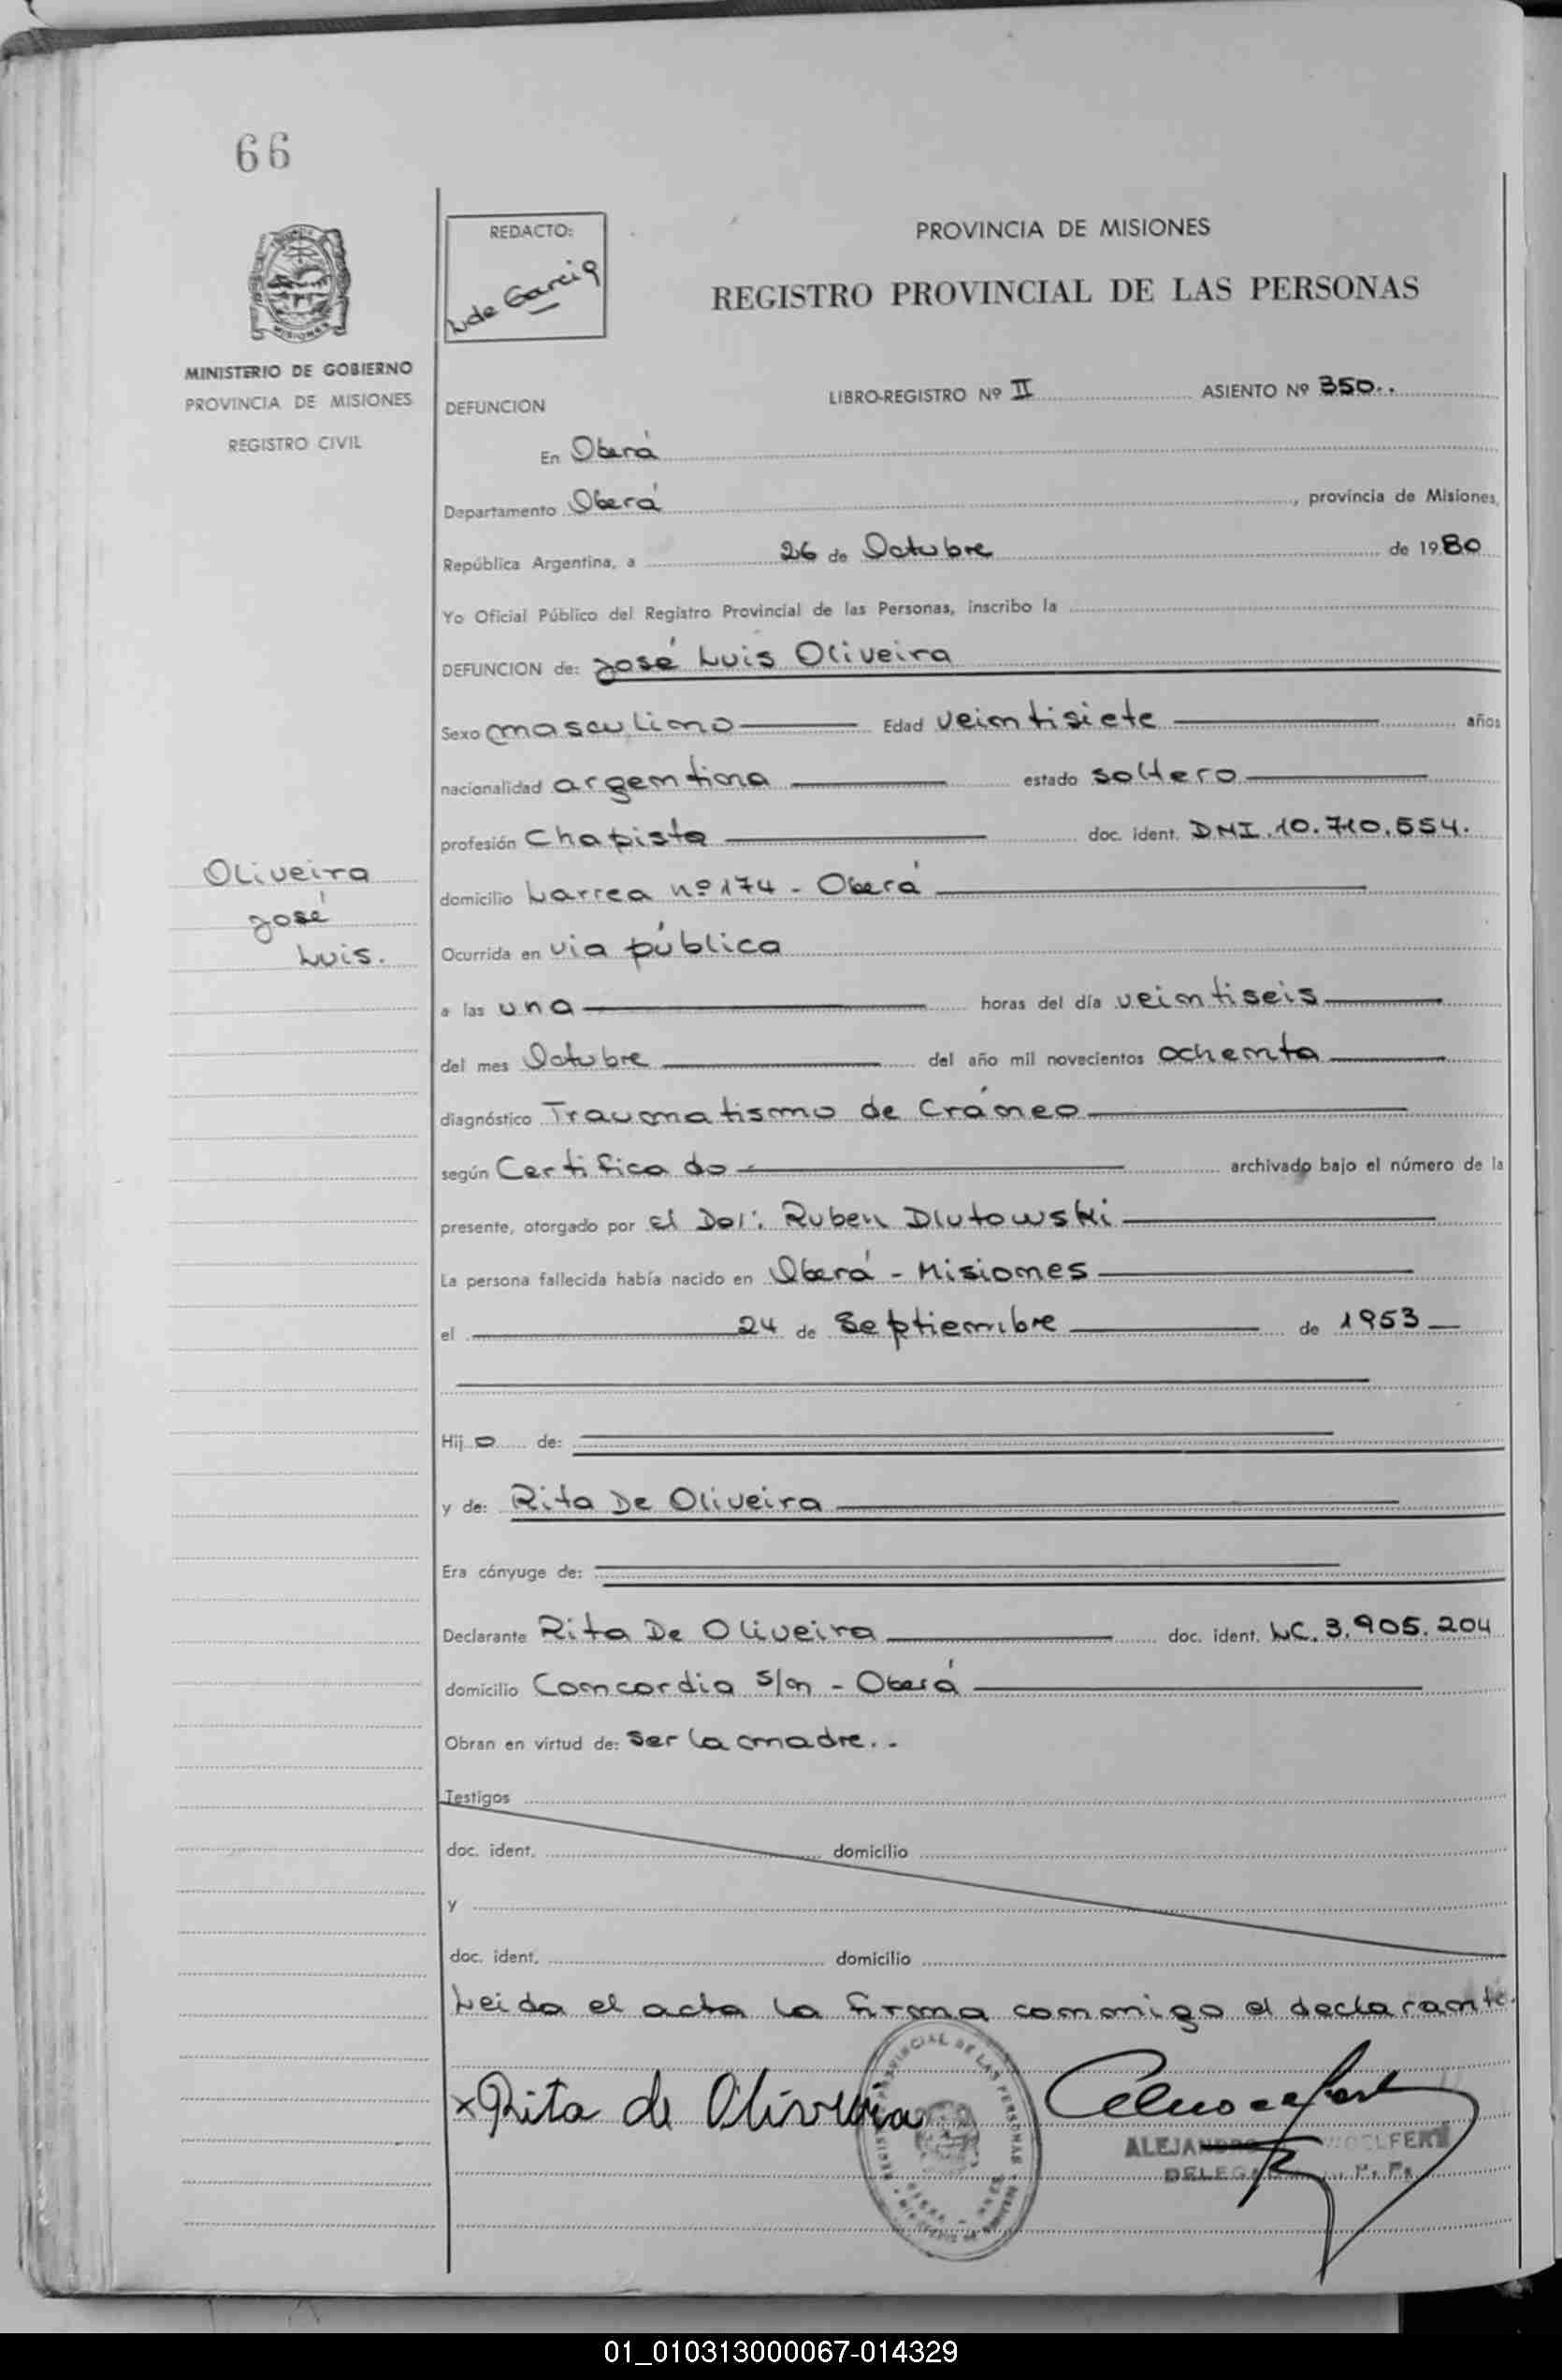 66
MINISTERIO DE GOBIERNO
PROVINCIA DE MISIONES
REGISTRO CIVIL
REDACTO:
L de Garcia
PROVINCIA DE MISIONES
REGISTRO PROVINCIAL DE LAS PERSONAS
DEFUNCION LIBRO-REGISTRO Nº II ASIENTO Nº 350..
En Oberá
Departamento Oberá, provincia de Misiones,
República Argentina, a 26 de Octubre de 1980
Yo Oficial Público del Registro Provincial de las Personas, inscribo la
DEFUNCION de: José Luis Oliveira
Sexo masculino Edad veintisiete años
nacionalidad argentina estado soltero
profesión Chapista doc. ident. DNI.10.710.554.
Oliveira
José
Luis.
domicilio Larrea nº 174 - Oberá
Ocurrida en via pública
a las una horas del día veintiseis
del mes Octubre del año mil novecientos ochenta
diagnóstico Traumatismo de Cráneo
según Certificado archivado bajo el número de la
presente, otorgado por el Dor: Ruben Dlutowski
La persona fallecida había nacido en Oberá - Misiones
el 24 de Septiembre de 1953
Hijo de:
y de: Rita De Oliveira
Era cónyuge de:
Declarante Rita De Oliveira doc. ident. LC. 3.905.204
domicilio Concordia s/n - Oberá
Obran en virtud de: ser la madre..
Testigos
doc. ident. domicilio
y
doc. ident. domicilio
Leida el acta la firma conmigo el declarante.
x Rita de Oliveira
01_010313000067-014329